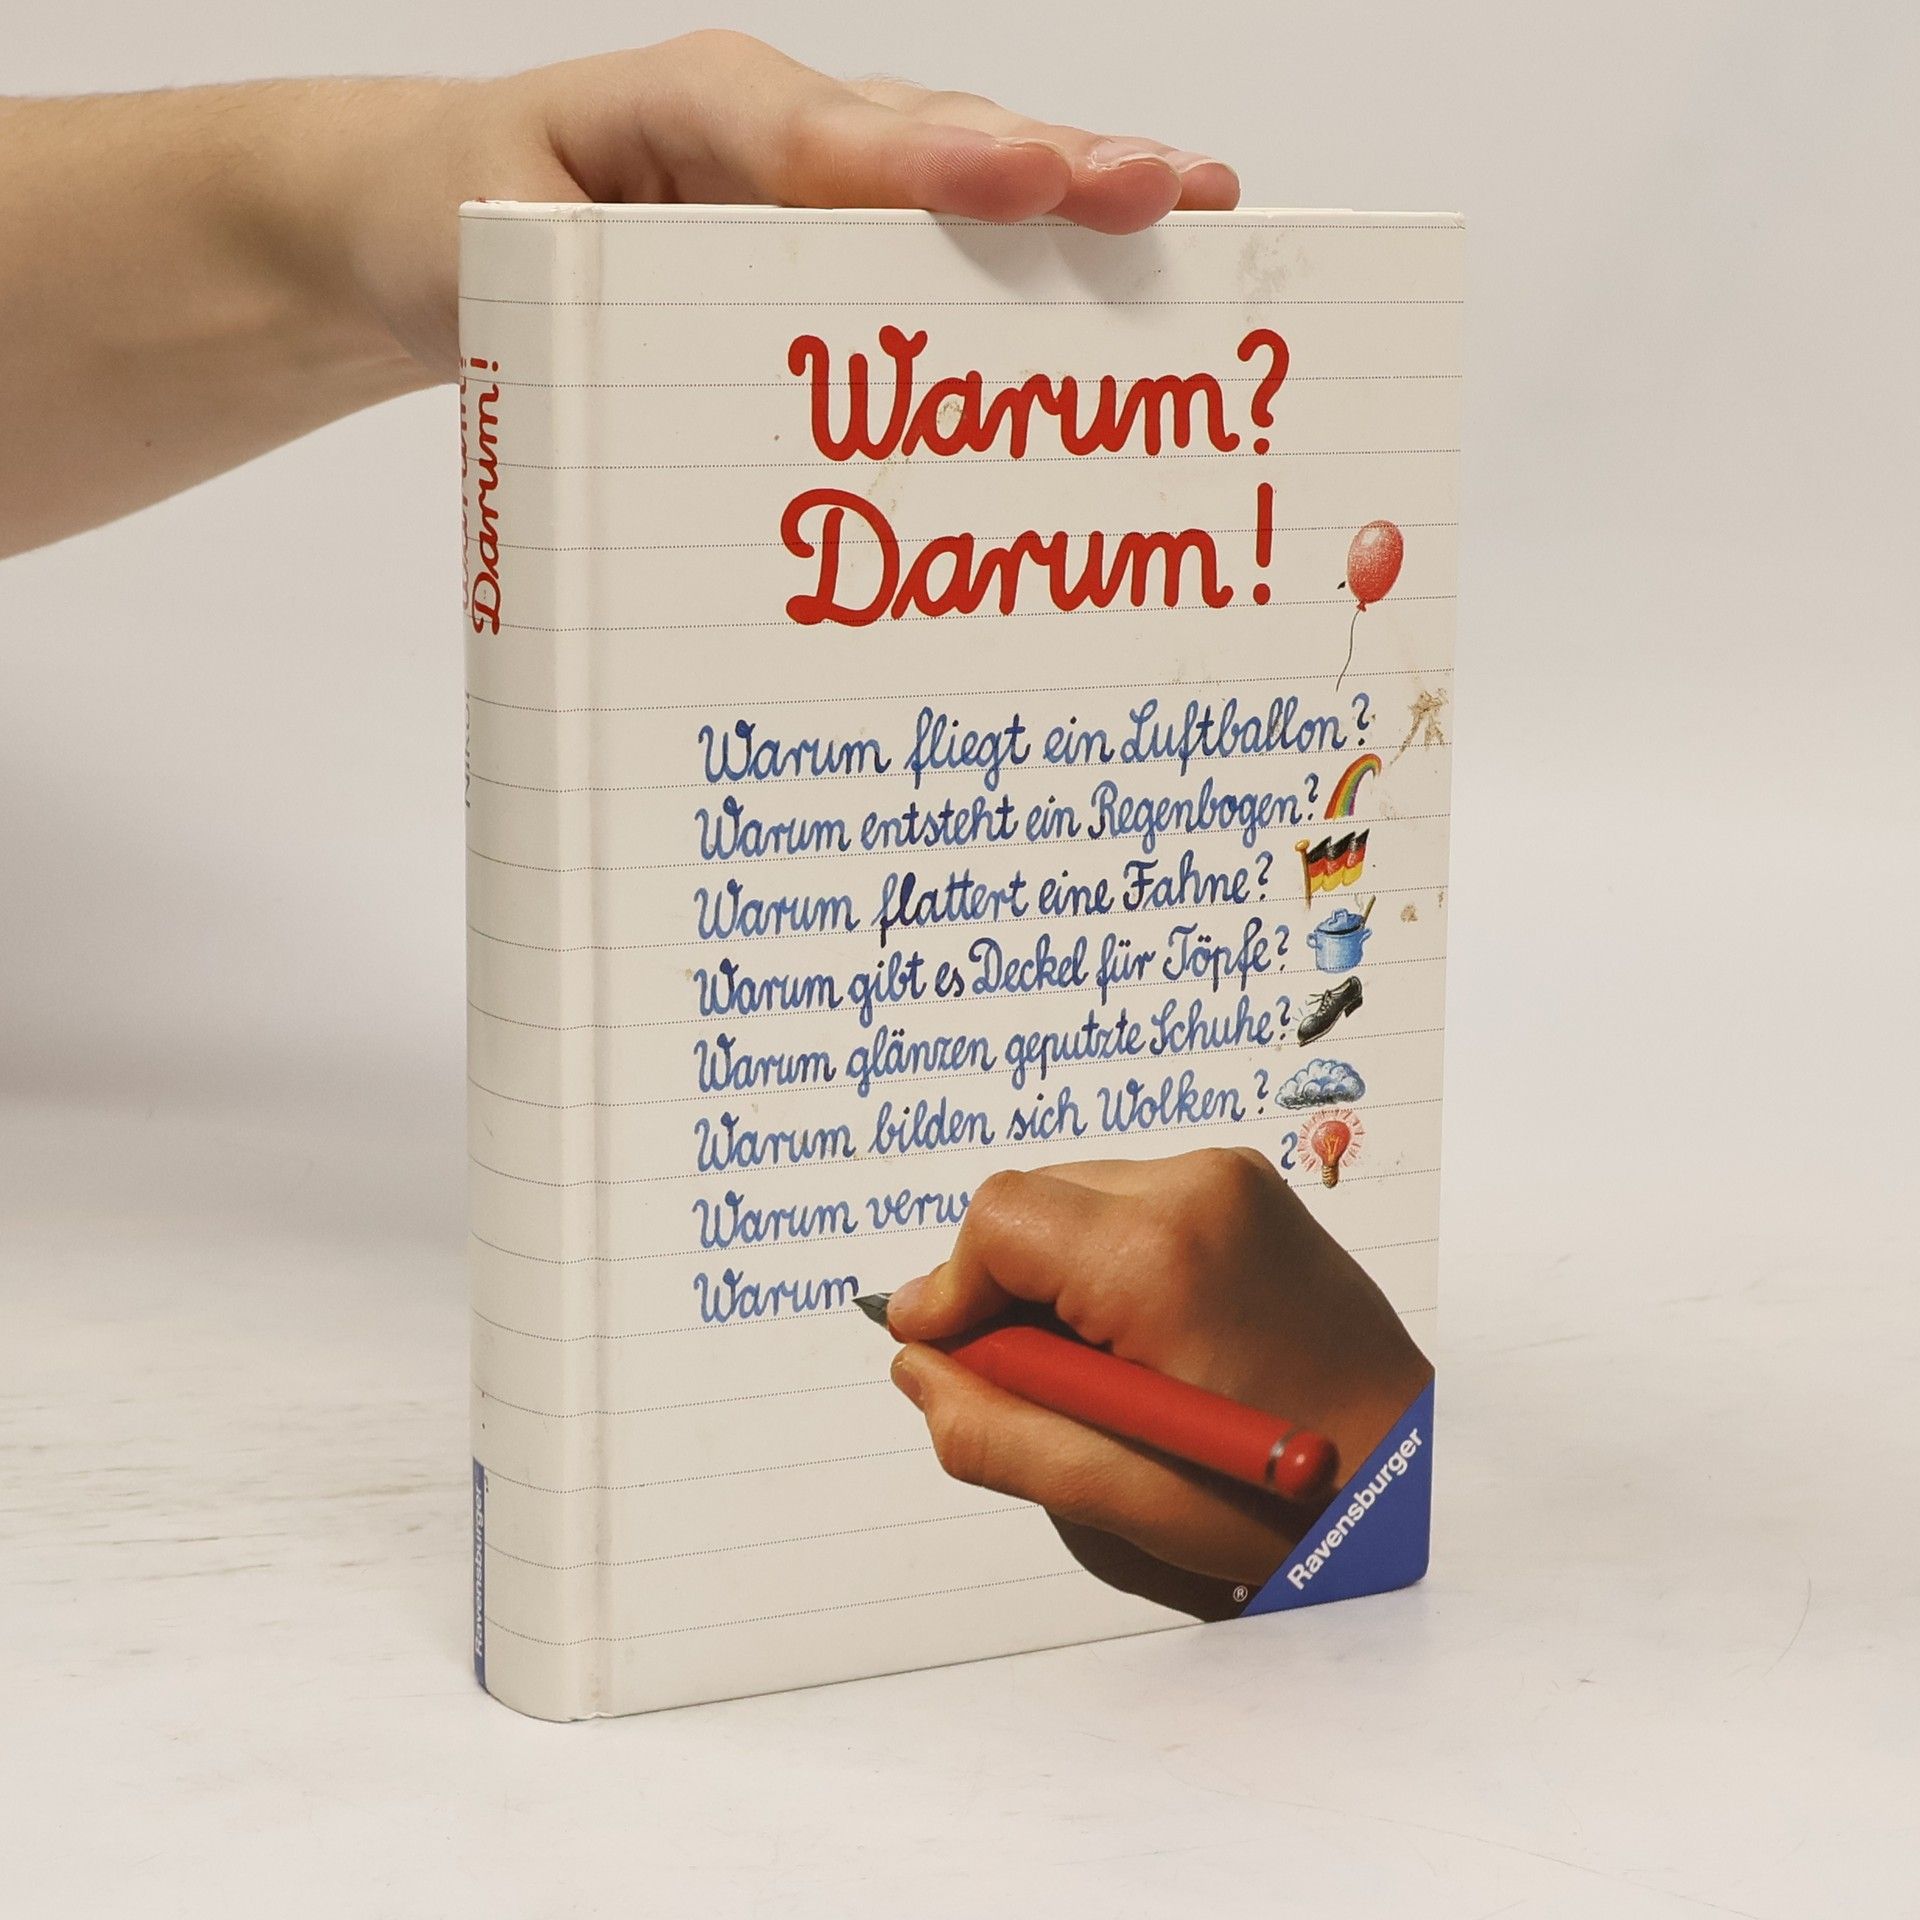 Warum?
Darum!
Warum fliegt ein Luftballon?
Warum entsteht ein Regenbogen?
Warum flattert eine Fahne?
Warum gibt es Deckel für Töpfe?
Warum glänzen geputzte Schuhe?
Warum bilden sich Wolken?
Warum ?
Warum
Ravensburger
®
Darum!
Ravensburger